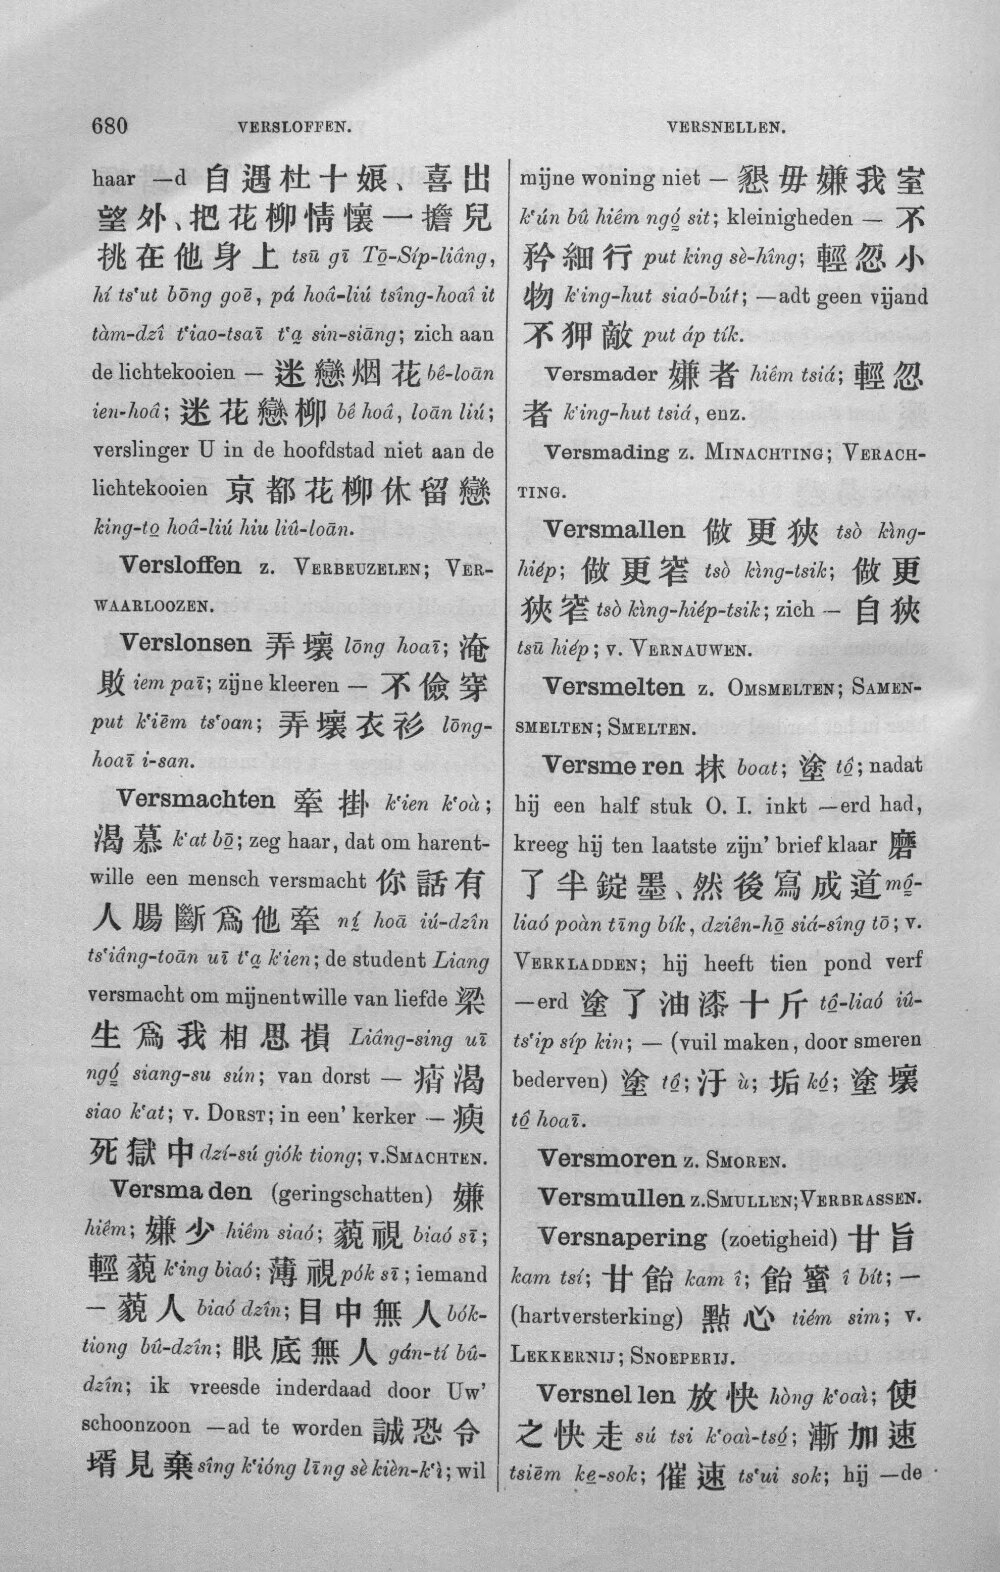 680
VERSLOFFEN.
VERSNELLEN.
haar —d 自遇杜十娘、喜出
望外、把花柳情懷一擔兒
挑在他身上 tsū gī Tō̲-Síp-liâng,
hí ts‘ut bōng goē, pá hoâ-liú tsîng-hoaî it
tàm-dzî t‘iao-tsaī t‘a̲ sin-siāng; zich aan
de lichtekooien — 迷戀烟花 bê-loān
ien-hoâ; 迷花戀柳 bê hoâ, loān liú;
verslinger U in de hoofdstad niet aan de
lichtekooien 京都花柳休留戀
king-to̲ hoâ-liú hiu liû-loān.
Versloffen z. VERBEUZELEN; VER-
WAARLOOZEN.
Verslonsen 弄壞 lōng hoaī; 淹
敗 iem paī; zijne kleeren — 不儉穿
put k‘iēm ts‘oan; 弄壞衣衫 lōng-
hoaī i-san.
Versmachten 牽掛 k‘ien k‘oà;
渴慕 k‘at bō̲; zeg haar, dat om harent-
wille een mensch versmacht 你話有
人腸斷爲他牽 ní̲ hoā iú-dzîn
ts‘iâng-toān uī t‘a̲ k‘ien; de student Liang
versmacht om mijnentwille van liefde 梁
生爲我相思損 Liâng-sing uī
ngó̲ siang-su sún; van dorst — 痟渴
siao k‘at; v. DORST; in een’ kerker — 瘐
死獄中 dzí-sú giók tiong; v. SMACHTEN.
Versmaden (geringschatten) 嫌
hiêm; 嫌少 hiêm siaó; 藐視 biaó sī;
輕藐 k‘ing biaó; 薄視 pók sī; iemand
— 藐人 biaó dzîn; 目中無人 bók-
tiong bû-dzîn; 眼底無人 gán-tí bû-
dzîn; ik vreesde inderdaad door Uw’
schoonzoon —ad te worden 誠恐令
壻見棄 sîng k‘ióng līng sè kièn-k‘ì; wil
mijne woning niet — 懇毋嫌我室
k‘ún bû hiêm ngó̲ sit; kleinigheden — 不
矜細行 put king sè-hîng; 輕忽小
物 k‘ing-hut siaó-bút; —adt geen vijand
不狎敵 put áp tík.
Versmader 嫌者 hiêm tsiá; 輕忽
者 k‘ing-hut tsiá, enz.
Versmading z. MINACHTING; VERACH-
TING.
Versmallen 做更狹 tsò kìng-
hiép; 做更窄 tsò kìng-tsik; 做更
狹窄 tsò kìng-hiép-tsik; zich — 自狹
tsū hiép; v. VERNAUWEN.
Versmelten z. OMSMELTEN; SAMEN-
SMELTEN; SMELTEN.
Versmeren 抹 boat; 塗 tô̲; nadat
hij een half stuk O. I. inkt —erd had,
kreeg hij ten laatste zijn’ brief klaar 磨
了半錠墨、然後寫成道 mô̲-
liaó poàn tīng bík, dziên-hō̲ siá-sîng tō; v.
VERKLADDEN; hij heeft tien pond verf
—erd 塗了油漆十斤 tô̲-liaó iû-
ts‘ip síp kin; — (vuil maken, door smeren
bederven) 塗 tô̲; 汙 ù; 垢 kó̲; 塗壞
tô̲ hoaī.
Versmoren z. SMOREN.
Versmullen z. SMULLEN; VERBRASSEN.
Versnapering (zoetigheid) 甘旨
kam tsí; 甘飴 kam î; 飴蜜 î bít; —
(hartversterking) 點心 tiém sim; v.
LEKKERNIJ; SNOEPERIJ.
Versnellen 放快 hòng k‘oaì; 使
之快走 sú tsi k‘oaì-tsó̲; 漸加速
tsiēm ke̲-sok; 催速 ts‘ui sok; hij —de